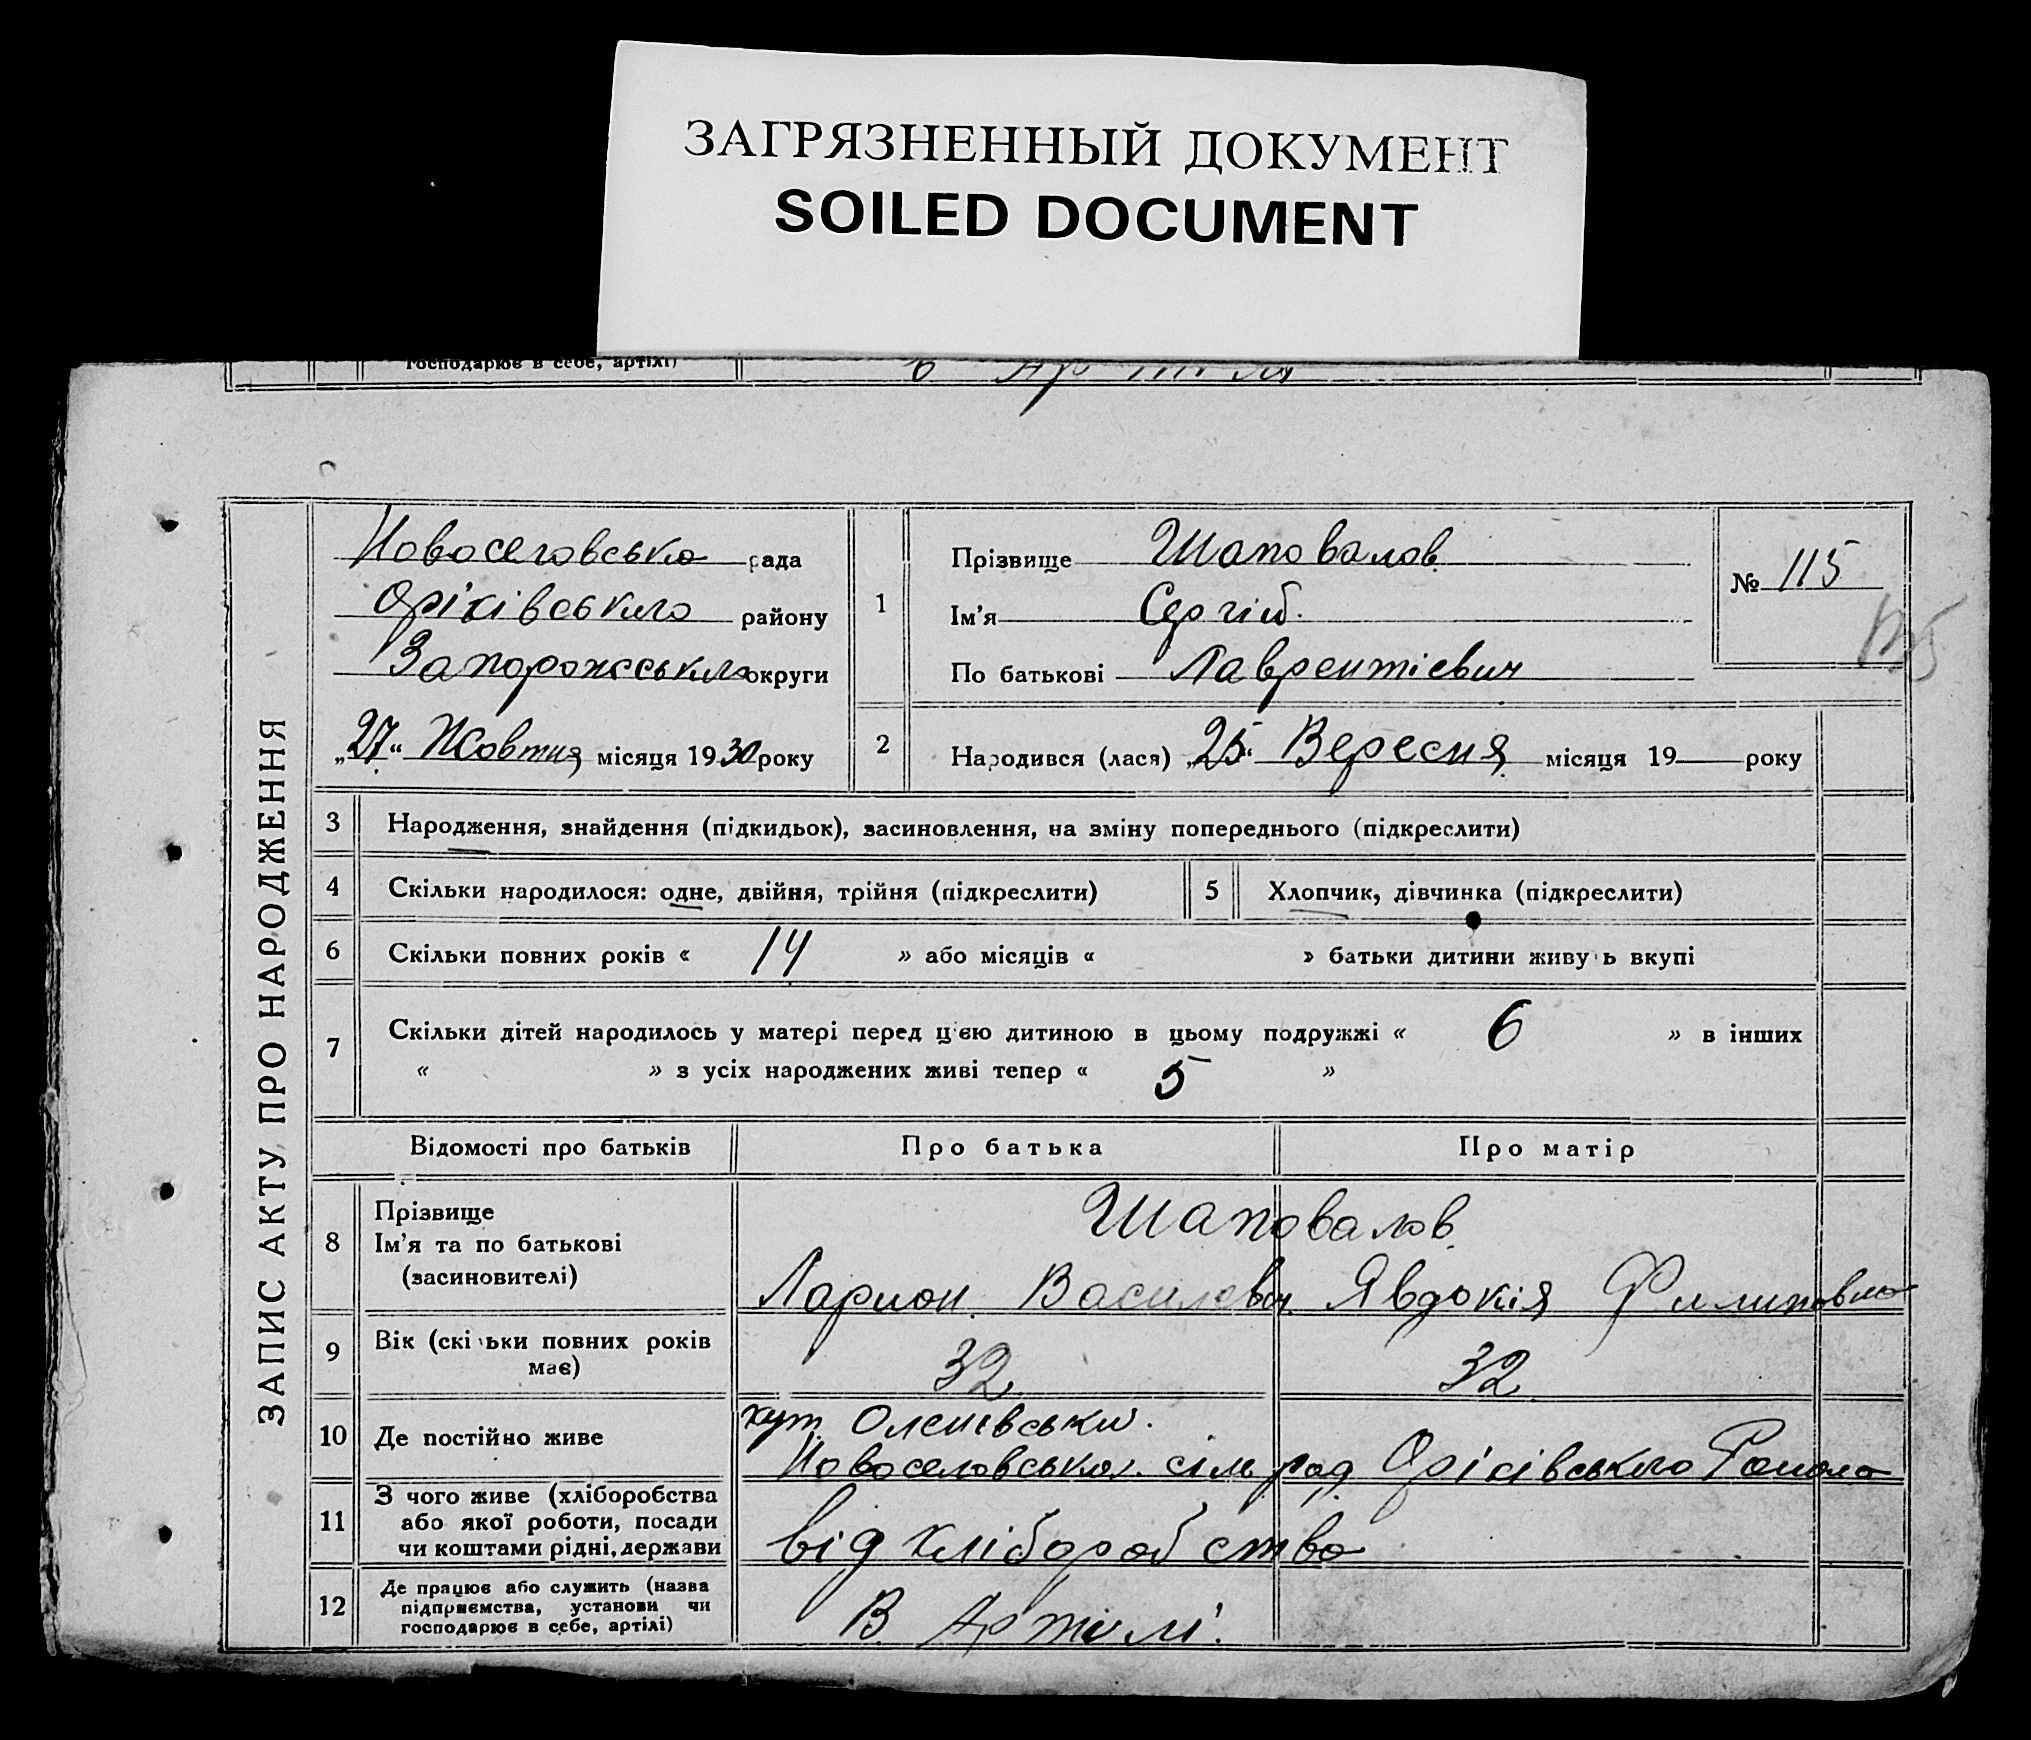 ЗАГРЯЗНЕННЫЙ ДОКУМЕНТ
SOILED DOCUMENT
господарює в себе, артілі)
ЗАПИС АКТУ ПРО НАРОДЖЕННЯ
Новоселовсько рада
Оріхівського району
Запорожського округи
„27“ Жовтня місяця 1930 року
1
Прізвище Шаповалов
Ім’я Сергій.
По батькові Лаврентієвич
№ 115
115
2 Народився (лася) „25“ Вересня місяця 19 року
3 Народження, знайдення (підкидьок), засиновлення, на зміну попереднього (підкреслити)
4 Скільки народилося: одне, двійня, трійня (підкреслити) 5 Хлопчик, дівчинка (підкреслити)
6 Скільки повних років « 14 » або місяців « » батьки дитини живуть вкупі
7 Скільки дітей народилось у матері перед цією дитиною в цьому подружжі « 6 » в інших
« » з усіх народжених живі тепер « 5 »
Відомості про батьків Про батька Про матір
8 Прізвище
Ім’я та по батькові
(засиновителі)
Шаповалов
Ларион Василевич Явдокія Филиповна
9 Вік (скільки повних років
має)
32 32
10 Де постійно живе
хут. Оленівськи.
Новоселовськ. сіль рад Оріхівського Району
11 З чого живе (хліборобства
або якої роботи, посади
чи коштами рідні, держави
від хлібороб ство
12 Де працює або служить (назва
підприємства, установи чи
господарює в себе, артілі)
В Артилі.